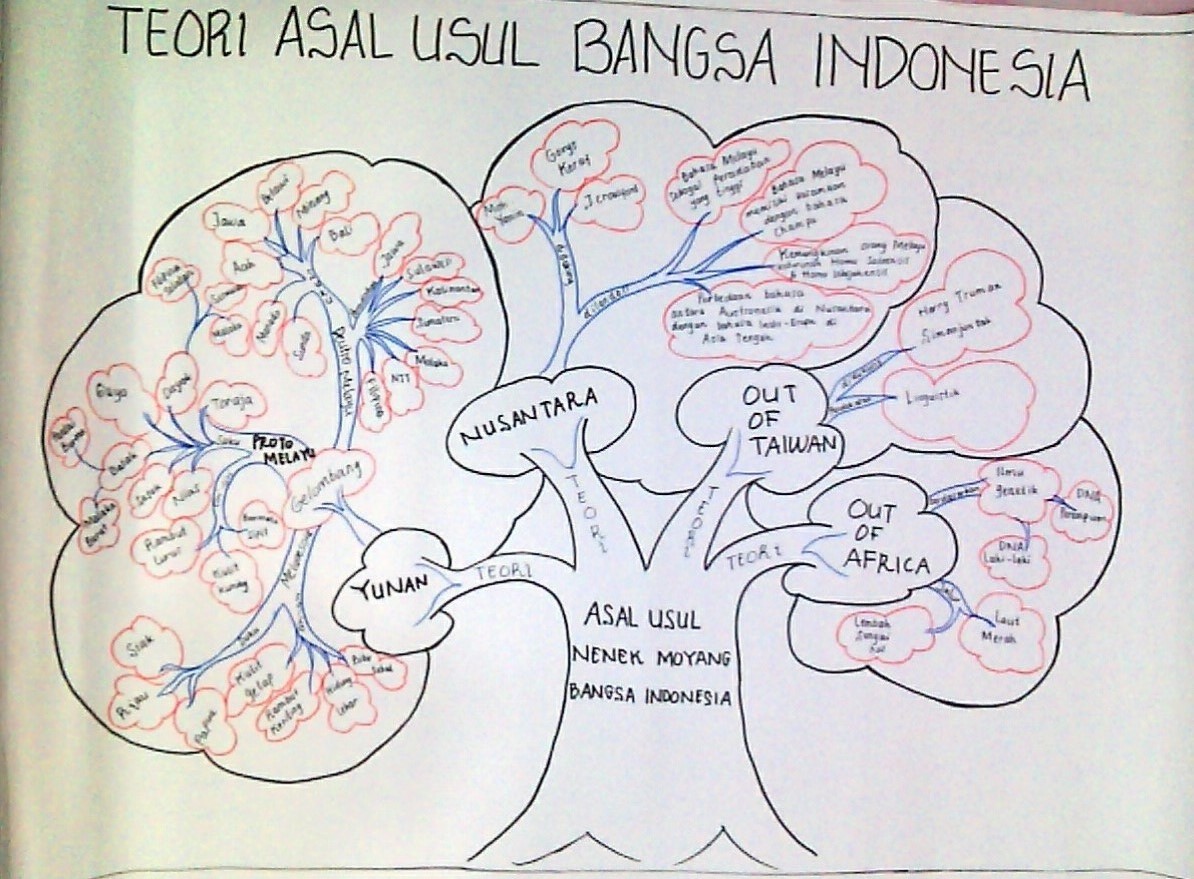 TEORI ASAL USUL BANGSA INDONESIA
Gorys
Keraf
Moh
J Crawford
didukung
dilandasi
Bahasa Melayu
sebagai Peradaban
yang tinggi
Bahasa Melayu
memiliki kesamaan
dengan bahasa
Champa
Kemungkinan orang Melayu
keturunan Homo Soloensis
& Homo Wajakensis
Perbedaan bahasa
antara Austronesia di Nusantara
dengan bahasa Indo-Eropa di
Asia Tengah
NUSANTARA
TEORI
OUT
OF
TAIWAN
TEORI
didukung
Harry Truman
Simanjuntak
Linguistik
OUT
OF
AFRICA
TEORI
berdasarkan
Ilmu
genetik
DNA
Perempuan
DNA
Laki-laki
Jalur
Lembah
Sungai
Nil
Laut
Merah
YUNAN
TEORI
Gelombang
Deutro Melayu
Jawa
Betawi
Minang
Bali
Aceh
Melaku
Manado
Sunda
Jawa
Sulawesi
Kalimantan
Sumatera
Malaka
NTT
Filipina
PROTO
MELAYU
Suku
Gayo
Dayak
Toraja
Batak
Sasak
Nias
Rambut
Lurus
Kulit
Kuning
Melanesia
Suku
Siak
Riau
Papua
Kulit
gelap
Rambut
Keriting
Hidung
lebar
Bibir
tebal
ASAL USUL
NENEK MOYANG
BANGSA INDONESIA